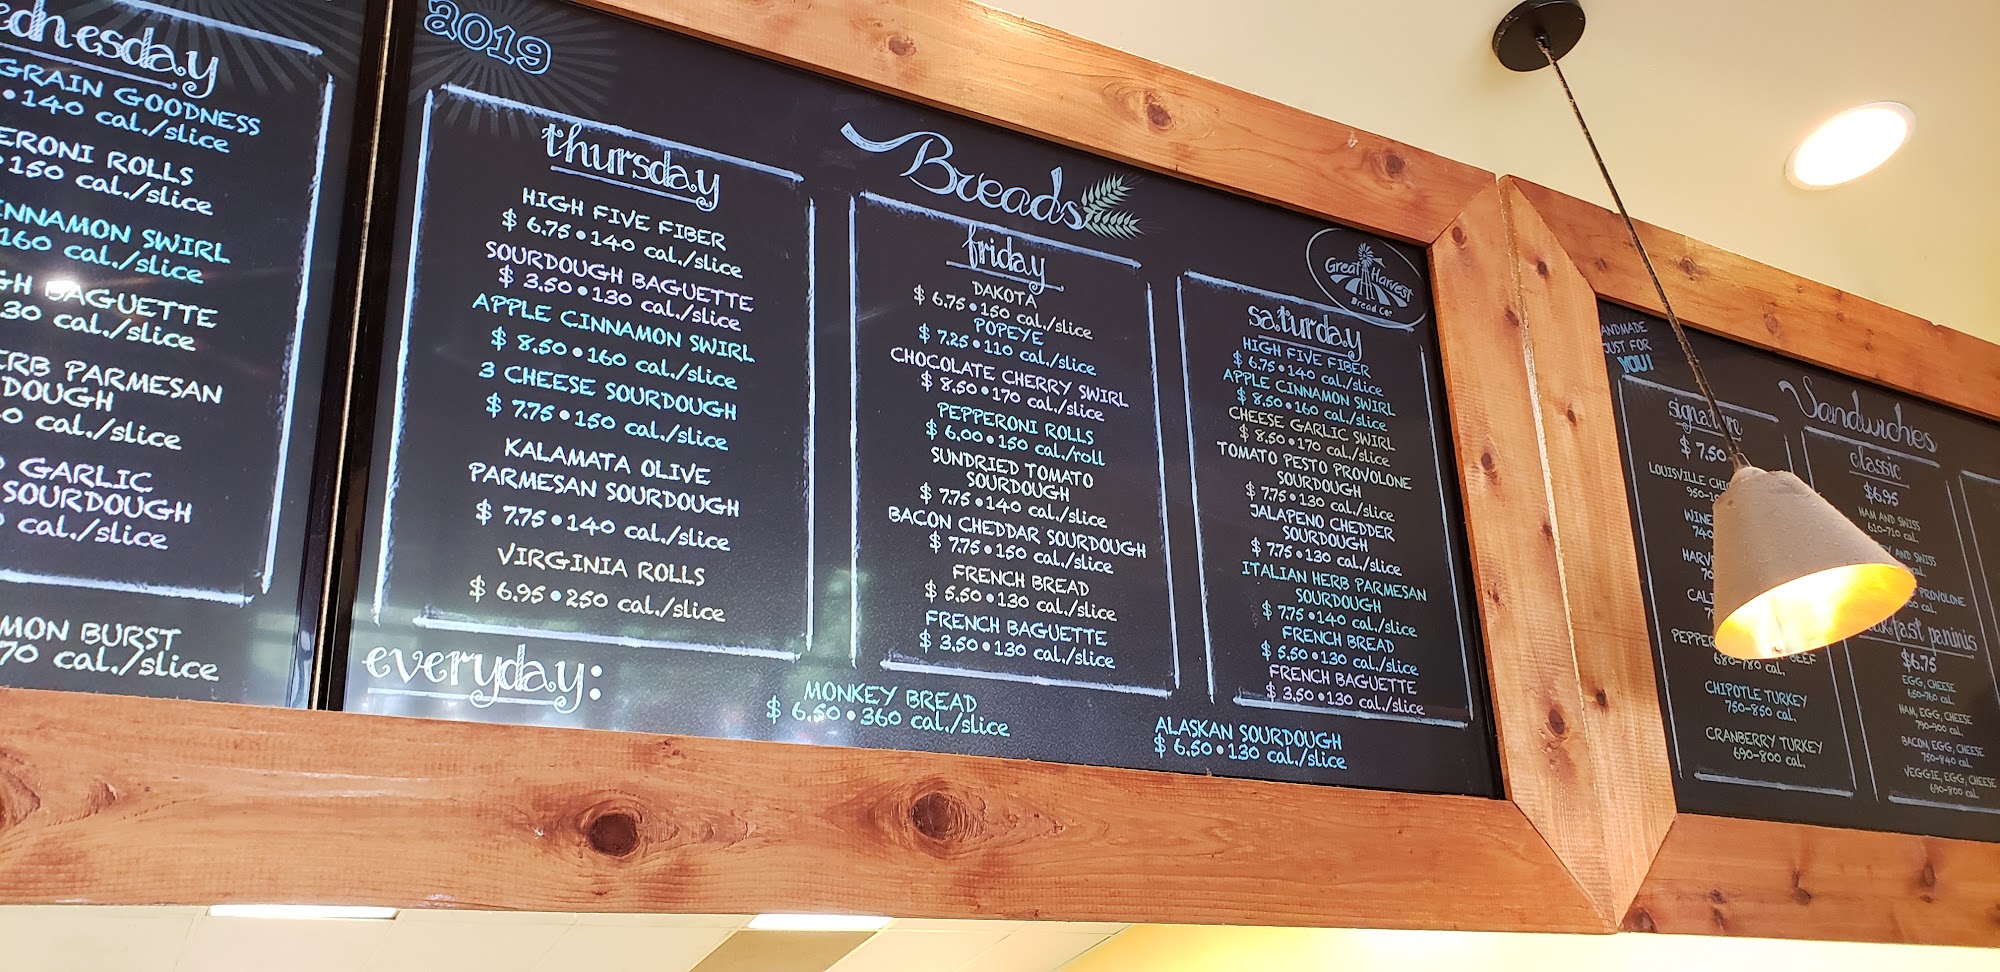 GRAIN GOODNESS
140 cal./slice
ROLLS
150 cal./slice
SWIRL
160 cal./slice
BAGUETTE
cal./slice
PARMESAN
cal./slice
GARLIC
SOURDOUGH
cal./slice
BURST
cal./slice
2019
Breads
thursday
HIGH FIVE FIBER
$ 6.75 • 140 cal./slice
SOURDOUGH BAGUETTE
$ 3.50 • 130 cal./slice
APPLE CINNAMON SWIRL
$ 8.50 • 160 cal./slice
3 CHEESE SOURDOUGH
$ 7.75 • 150 cal./slice
KALAMATA OLIVE
PARMESAN SOURDOUGH
$ 7.75 • 140 cal./slice
VIRGINIA ROLLS
$ 6.95 • 250 cal./slice
friday
DAKOTA
$ 6.75 • 150 cal./slice
POPEYE
$ 7.25 • 110 cal./slice
CHOCOLATE CHERRY SWIRL
$ 8.50 • 170 cal./slice
PEPPERONI ROLLS
$ 6.00 • 150 cal./roll
SUNDRIED TOMATO
SOURDOUGH
$ 7.75 • 140 cal./slice
BACON CHEDDAR SOURDOUGH
$ 7.75 • 150 cal./slice
FRENCH BREAD
$ 5.50 • 130 cal./slice
FRENCH BAGUETTE
$ 3.50 • 130 cal./slice
Great Harvest
Bread Co.
saturday
HIGH FIVE FIBER
$ 6.75 • 140 cal./slice
APPLE CINNAMON SWIRL
$ 8.50 • 160 cal./slice
CHEESE GARLIC SWIRL
$ 8.50 • 170 cal./slice
TOMATO PESTO PROVOLONE
SOURDOUGH
$ 7.75 • 130 cal./slice
JALAPENO CHEDDER
SOURDOUGH
$ 7.75 • 130 cal./slice
ITALIAN HERB PARMESAN
SOURDOUGH
$ 7.75 • 140 cal./slice
FRENCH BREAD
$ 5.50 • 130 cal./slice
FRENCH BAGUETTE
$ 3.50 • 130 cal./slice
everyday:
MONKEY BREAD
$ 6.50 • 360 cal./slice
ALASKAN SOURDOUGH
$ 6.50 • 130 cal./slice
JUST FOR
YOU!
Sandwiches
signature
$ 7.50
LOUISVILLE
BEEF
680-780 cal.
CHIPOTLE TURKEY
750-850 cal.
CRANBERRY TURKEY
690-800 cal.
classic
$6.95
HAM AND SWISS
610-710 cal.
AND SWISS
cal.
PROVOLONE
cal.
paninis
$6.75
EGG, CHEESE
650-760 cal.
HAM, EGG, CHEESE
790-900 cal.
BACON, EGG, CHEESE
750-840 cal.
VEGGIE, EGG, CHEESE
690-800 cal.